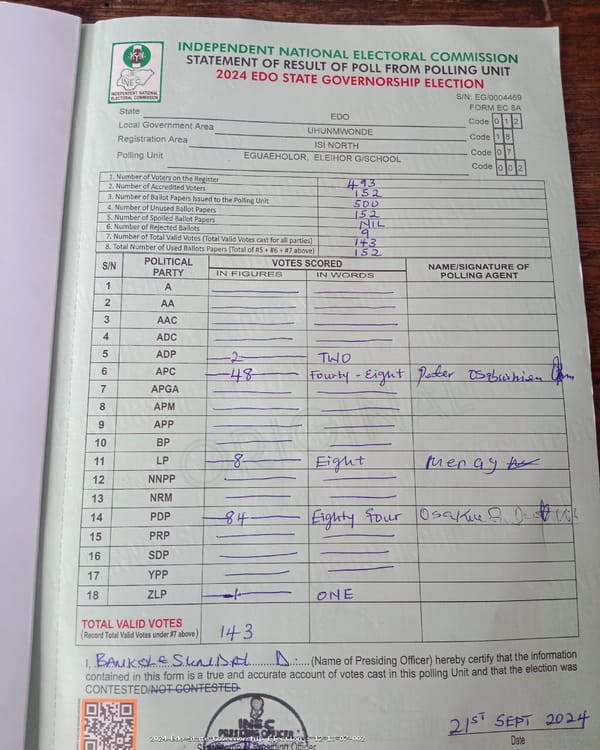 INDEPENDENT NATIONAL ELECTORAL COMMISSION
STATEMENT OF RESULT OF POLL FROM POLLING UNIT
2024 EDO STATE GOVERNORSHIP ELECTION
INEC
INDEPENDENT NATIONAL
ELECTORAL COMMISSION
S/N: EG/0004469
FORM EC 8A
State EDO Code 0 1 2
Local Government Area UHUNMWONDE Code 1 8
Registration Area ISI NORTH Code 0 7
Polling Unit EGUAEHOLOR, ELEIHOR G/SCHOOL Code 0 0 2
1. Number of Voters on the Register 493
2. Number of Accredited Voters 152
3. Number of Ballot Papers Issued to the Polling Unit 500
4. Number of Unused Ballot Papers 152
5. Number of Spoiled Ballot Papers NIL
6. Number of Rejected Ballots 9
7. Number of Total Valid Votes (Total Valid Votes cast for all parties) 143
8. Total Number of Used Ballots Papers (Total of #5 + #6 + #7 above) 152
S/N POLITICAL PARTY VOTES SCORED NAME/SIGNATURE OF POLLING AGENT
IN FIGURES IN WORDS
1 A
2 AA
3 AAC
4 ADC
5 ADP 2 TWO
6 APC 48 Fourty-Eight Peter
7 APGA
8 APM
9 APP
10 BP
11 LP 8 Eight
12 NNPP
13 NRM
14 PDP 84 Eighty four
15 PRP
16 SDP
17 YPP
18 ZLP 1 ONE
ORIGINAL
TOTAL VALID VOTES
(Record Total Valid Votes under #7 above) 143
I, D. (Name of Presiding Officer) hereby certify that the information
contained in this form is a true and accurate account of votes cast in this polling Unit and that the election was
CONTESTED/NOT CONTESTED.
INEC
PRESIDING OFFICER
21ST SEPT 2024
Presiding Officer
Date